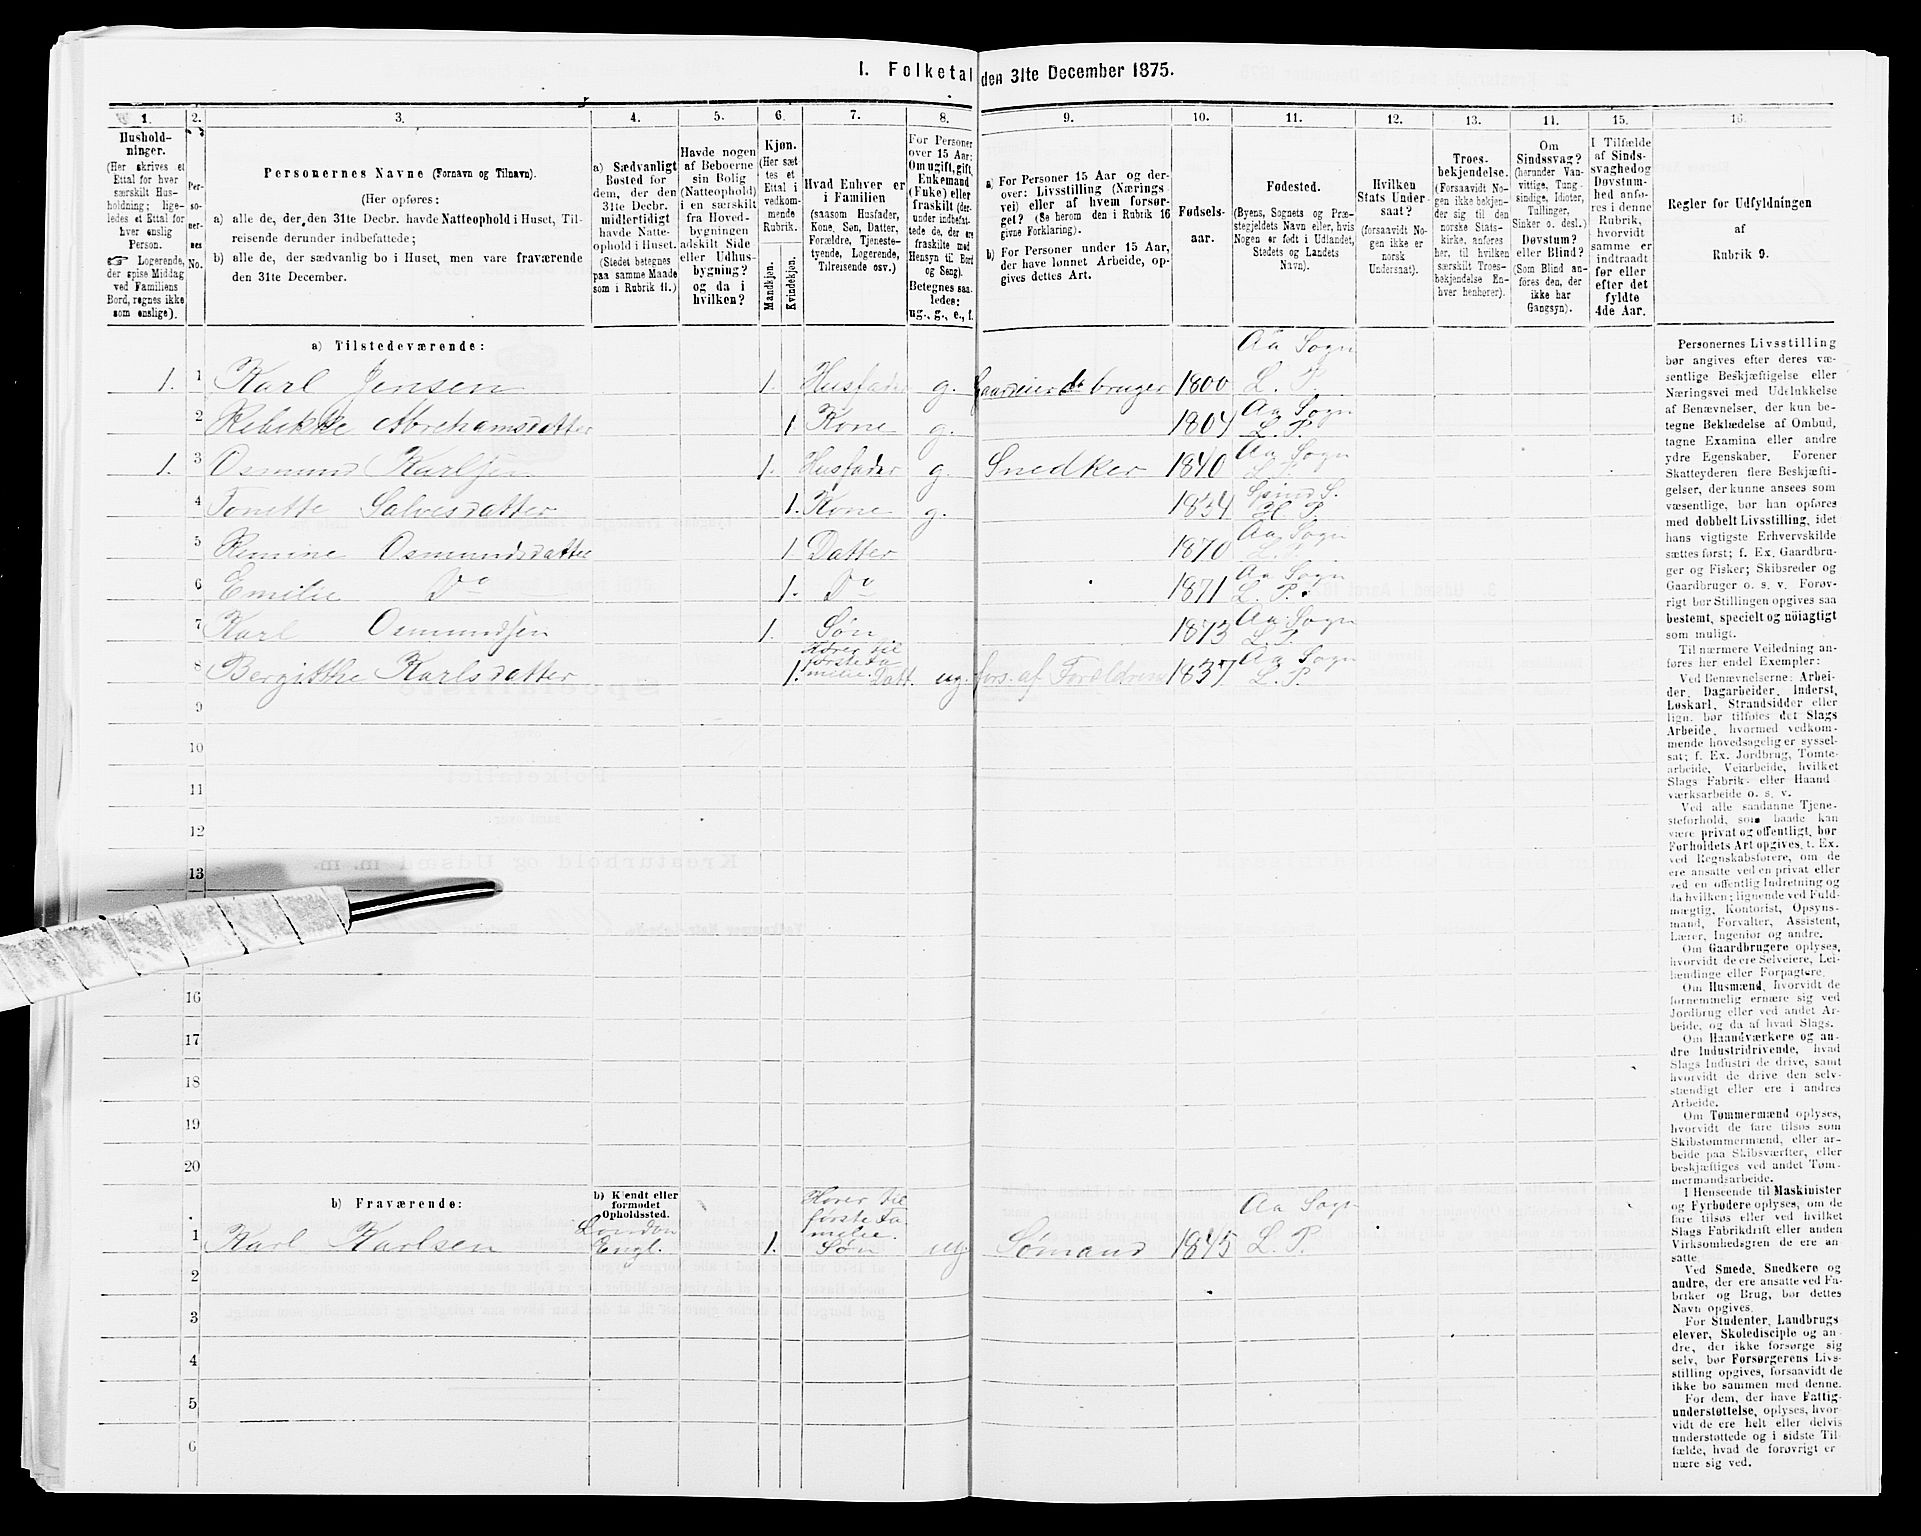 I. Folketal den 31te December 1875.
1.
2.
3.
4.
5.
6.
7.
8.
9.
10.
11.
12.
13.
11.
15.
16.
Hushold-
ninger.
(Her skrives et
Ettal for hver
særskilt Hus-
holdning; lige-
ledes et Ettal for
hver enslig
Person.
Logerende,
der spise Middag
ved Familiens
Bord, regnes ikke
som enslige).
Per-
so-
ner-
nes
No.
Personernes Navne (Fornavn og Tilnavn).
(Her opføres:
a) alle de, der den 31te Decbr. havde Natteophold i Huset, Til-
reisende derunder indbefattede;
b) alle de, der sædvanlig bo i Huset, men vare fraværende
den 31te December.
a) Sædvanligt
Bosted for
dem, der den
31te Decbr.
midlertidigt
havde Natte-
ophold i Huset.
(Stedet betegnes
paa samme Maade
som i Rubrik 11.)
Havde nogen
af Beboerne
sin Bolig
(Natteophold)
i en særskilt
fra Hoved-
bygningen
adskilt Side
eller Udhus-
bygning?
og da i
hvilken?
Kjøn.
(Her sæt
tes et
Ettal i
vedkom-
mende
Rubrik.
Mandkjøn.
Kvindekjøn.
Hvad Enhver er
i Familien
(saasom Husfader,
Kone, Søn, Datter,
Forældre, Tjeneste-
tyende, Logerende,
Tilreisende osv.)
For Personer
over 15 Aar:
Om ugift, gift,
Enkemand
(Enke) eller
fraskilt (der-
under indbefat-
tede de, der ere
fraskilte med
Hensyn til Bord
og Seng).
Betegnes saa-
ledes:
ug., g., e., f.
a) For Personer 15 Aar og der-
over: Livsstilling (Nærings
vei) eller af hvem forsør-
get? (Se herom den i Rubrik 16
givne Forklaring).
b) For Personer under 15 Aar,
der have lønnet Arbeide, op-
gives dettes Art.
Fødsels-
aar.
Fødested.
(Byens, Sognets og Præ-
stegjeldets Navn eller, hvis
Nogen er født i Udlandet,
Stedets og Landets
Navn).
Hvilken
Stats Under-
saat?
(forsaavidt No-
gen ikke er
norsk
Undersaat).
Troes-
bekjendelse.
(Forsaavidt No-
gen ikke bekjen-
der sig til den
norske Stats-
kirke, anføres
her, til hvilken
særskilt Troes-
bekjendelse En-
hver henhører).
Om
Sindssvag?
(herunder Van-
vittige, Tung-
sindige, Idioter,
Tullinger,
Sinker o. desl.)
Døvstum?
eller Blind?
(Som Blind an-
føres den, der
ikke har
Gangsyn).
I Tilfælde
af Sinds-
svaghed og
Døvstum-
hed anfø-
res i denne
Rubrik,
hvorvidt
samme er
indtraadt
før eller
efter det
fyldte
4de Aar.
Regler for Udfyldningen
af
Rubrik 9.
a) Tilstedeværende:
Aa Sogn
1. 1 Karl Jensen 1. Husfader g. Gaardeier do bruger 1800 L. P.
Aa Sogn
2 Rebekke Abrehamsdatter 1 Kone g. 1804 L. P.
Aa Sogn
1. 3 Osmund Karlsen 1. Husfader g. Snedker 1840 L. P.
Spind S.
4 Tonette Salvesdatter 1. Kone g. 1834 H. P.
Aa Sogn
5 Remine Osmundsdatter 1 Datter 1870 L. P.
Aa Sogn
6 Emilie Do 1. Do 1871 L. P.
Aa Sogn
7 Karl Osmundsen 1. Søn 1873 L. P.
Hører til
første Fa
milie.
Aa Sogn
8 Bergitthe Karlsdatter 1. Datt. ug. fors. af Forældrene 1837 L. P.
9
10
11
12
13
16
17
18
19
20
b) Fraværende:
b) Kjendt eller
formodet
Opholdssted.
Hører til
første Fa
milie.
London
Engl.
Aa Sogn
1 Karl Karlsen 1. Søn ug. Sømand 1845 L. P.
2
3
4
5
6
Personernes Livsstilling
bør angives efter deres væ-
sentlige Beskjæftigelse eller
Næringsvei med Udelukkelse
af Benævnelser, der kun be-
tegne Beklædelse af Ombud,
tagne Examina eller andre
ydre Egenskaber. Forener
Skatteyderen flere Beskjæfti-
gelser, der kunne ansees som
væsentlige, bør han opføres
med dobbelt Livsstilling, idet
hans vigtigste Erhvervskilde
sættes først; f. Ex. Gaardbru-
ger og Fisker; Skibsreder og
Gaardbruger o. s. v. Forøv-
rigt bør Stillingen opgives saa
bestemt, specielt og nöiagtigt
som muligt.
Til nærmere Veiledning an-
føres her endel Exempler:
Ved Benævnelserne: Arbei-
der, Dagarbeider, Inderst,
Løskarl, Strandsidder eller
lign. bør tilføies det Slags
Arbeide, hvormed vedkom-
mende hovedsagelig er syssel-
sat; f. Ex. Jordbrug, Tomte-
arbeide, Veiarbeide, hvilket
Slags Fabrik- eller Haand
værksarbeide o. s. v.
Ved alle saadanne Tjene-
steforhold, som baade kan
være privat og offentligt, bør
Forholdets Art opgives, f. Ex.
ved Regnskabsførere, om de
ere ansatte ved en privat eller
ved en offentlig Indretning og
da hvilken; lignende ved Fuld-
mægtig, Kontorist, Opsyns-
mand, Forvalter, Assistent,
Lærer, Ingeniør og andre.
Om Gaardbrugere oplyses,
hvorvidt de ere Selveiere, Lei-
lændinge eller Forpagtere.
Om Husmænd, hvorvidt de
fornemmelig ernære sig ved
Jordbrug eller ved andet Ar-
beide, og da af hvad Slags.
Om Haandværkere og an-
dre Industridrivende, hvad
Slags Industri de drive, samt
hvorvidt de drive den selv-
stændigt eller ere i andres
Arbeide.
Om Tømmermænd oplyses,
hvorvidt de fare tilsøs som
Skibstømmermænd, eller ar-
beide paa Skibsværfter, eller
beskjæftiges ved andet Tøm-
mermandsarbeide.
I Henseende til Maskinister
og Fyrbødere oplyses, om de
fare tilsøs eller ved hvilket
Slags Fabrikdrift eller anden
Virksomhedsgren de ere an-
satte.
Ved Smede, Snedkere og
andre, der ere ansatte ved Fa-
briker og Brug, bør dettes
Navn opgives.
For Studenter, Landbrugs
elever, Skoledisciple og an-
dre, der ikke forsørge sig
selv, bør Forsørgerens Livs-
stilling opgives, forsaavidt de
ikke bo sammen med denne.
For dem, der have Fattig-
understøttelse, oplyses, hvor-
vidt de ere helt eller delvis
understøttede og i sidste Til-
fælde, hvad de forøvrigt er
nære sig ved.